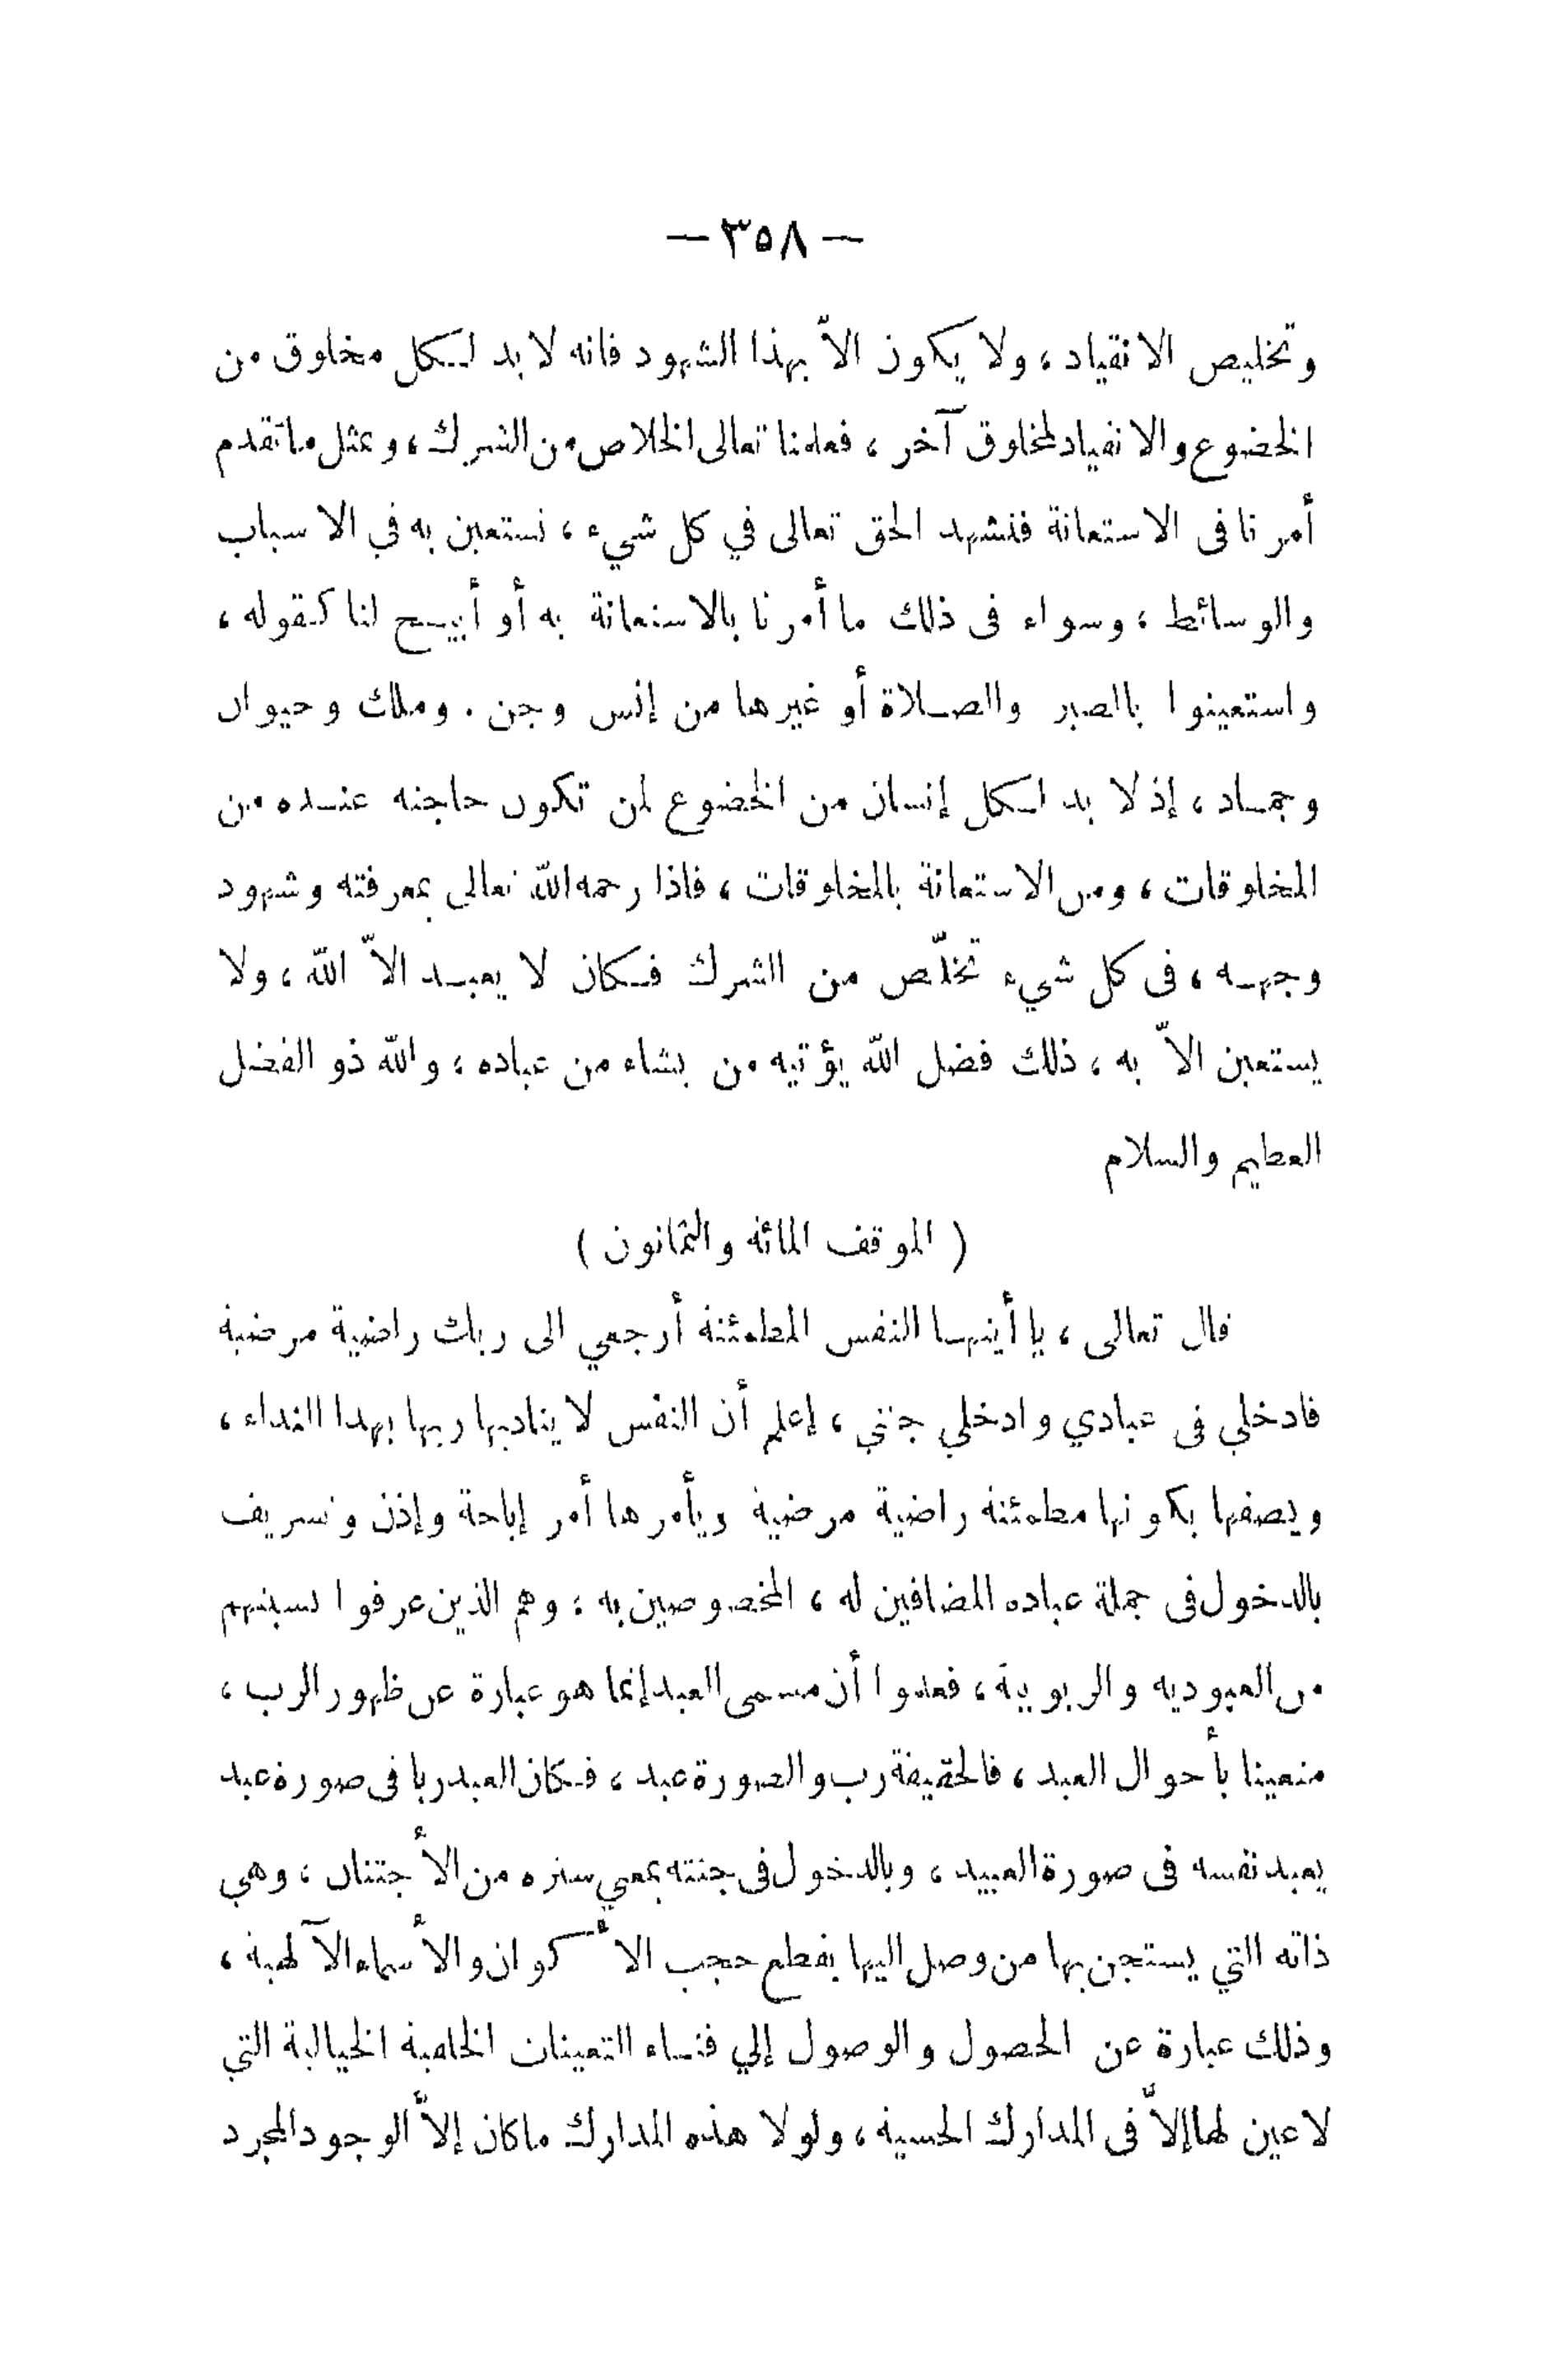 — ٣٥٨ —
وتخليص الانقياد ، ولا يكون الاّ بهذا الشهود فانه لا بد لكل مخلوق من
الخضوع والانقياد لمخلوق آخر ، فعلمنا تعالى الخلاص من الشرك ، وبمثل ما تقدم
أمرنا فى الاستعانة فنشهد الحق تعالى في كل شيء ، نستعين به في الاسباب
والوسائط ، وسواء فى ذلك ما أمرنا بالاستعانة به أو أبيح لنا كقوله ،
واستعينوا بالصبر والصلاة أو غيرها من إنس وجن . وملك وحيوان
وجماد ، إذ لا بد لكل إنسان من الخضوع لمن تكون حاجته عنده من
المخلوقات ، ومن الاستعانة بالمخلوقات ، فاذا رحمه الله تعالى بمعرفته وشهود
وجهه ، فى كل شيء تخلّص من الشرك فكان لا يعبد الاّ الله ، ولا
يستعين الاّ به ، ذلك فضل الله يؤتيه من يشاء من عباده ، والله ذو الفضل
العظيم والسلام
( الموقف المائه والثمانون )
قال تعالى ، يا أيتها النفس المطمئنة أرجعي الى ربك راضية مرضية
فادخلي فى عبادي وادخلي جنتي ، إعلم أن النفس لا يناديها ربها بهذا النداء ،
ويصفها بكونها مطمئنة راضية مرضية ويأمرها أمر إباحة وإذن وتشريف
بالدخول فى جملة عباده المضافين له ، المخصوصين به ، وهم الذين عرفوا نسبتهم
من العبوديه والربوبية ، فعلموا أن مسمى العبد إنما هو عبارة عن ظهور الرب ،
متعينا بأحوال العبد ، فالحقيقة رب والصورة عبد ، فكان العبد ربا فى صورة عبد
يعبد نفسه فى صورة العبيد ، وبالدخول فى جنته بمعني ستره من الأجتنان ، وهي
ذاته التي يستجن بها من وصل اليها بقطع حجب الأكوان والأسماء الآلهية ،
وذلك عبارة عن الحصول والوصول إلي فناء التعينات الخلقية الخيالية التي
لا عين لها إلاّ فى المدارك الحسية ، ولولا هذه المدارك ما كان إلاّ الوجود المجرد